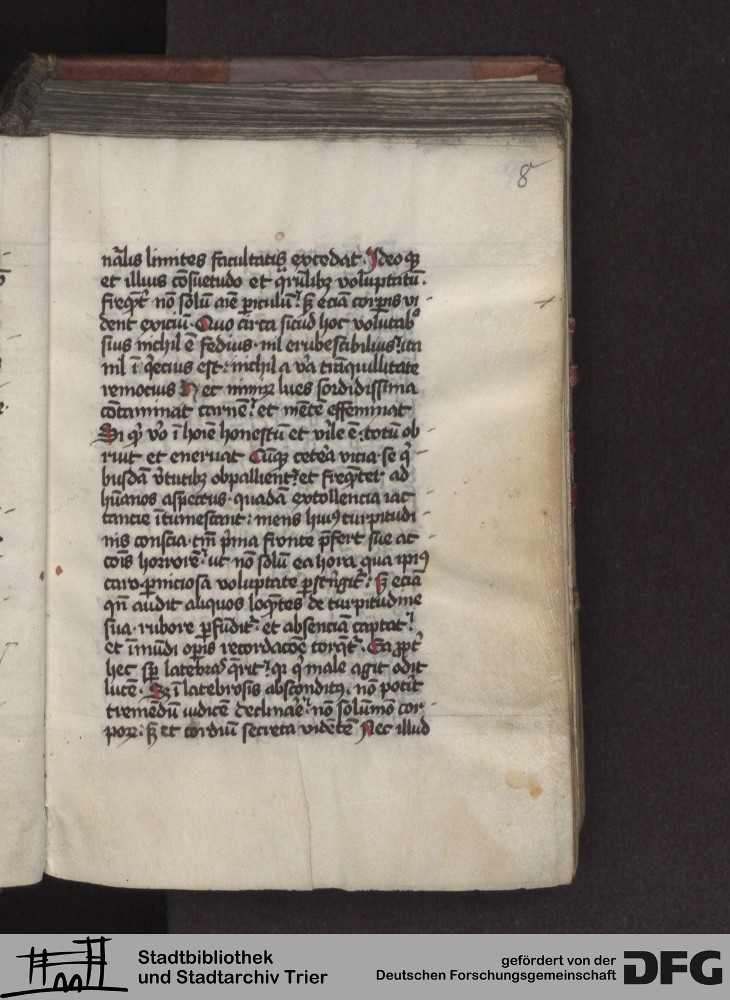 8
nālis limites facultatis excedat. Ideoqꝫ
et illius cōsuetudo et qrūlibꝫ voluptatū.
freqn̄t nō solū aīe piculū? sꝫ eciā corpis vi
dent exiciū. Quo circa sicud hoc volutabº
sius nichil ē fedius. nil erubescibilius? ita
nil ī qecius est: nichil a va tranquillitate
remocius et nimiꝝ lues sordidissima
cōtaminat carnē? et mētē effeminat
Si qͥ vo ī hoīe honestū et vile ē. totū ob
ruit et eneruat Cūqꝫ cetea vicia se qͥ
busdā vtutibꝫ obpallient? et freqnter ad
hūanos aspectus. quadā extollencia iac
tancie ītumescant: mens huiꝰ turpitudi
nis conscia. tn̄ pma fronte pfert sue ac
cōis horrorē? ut nō solū ea hora qua ipiꝰ
caro. pniciosa voluptate pstrīgit? sꝫ eciā
qn̄ audit aliquos loqntes de turpitudine
sua. rubore pfūdit? et absenciā captat?
et īmūdi opis recordacōe torqt. Ea ppt
hec sp latebra qrit? qꝛ qͥ male agit odit
lucē. Sꝫ ī latebrosis absconditꝯ. nō potit
tremēdū iudicē declinae? nō solūmō cor
poꝝ: sꝫ et cordiū secreta vidētē Nec illud
Stadtbibliothek
und Stadtarchiv Trier
gefördert von der
Deutschen Forschungsgemeinschaft
DFG